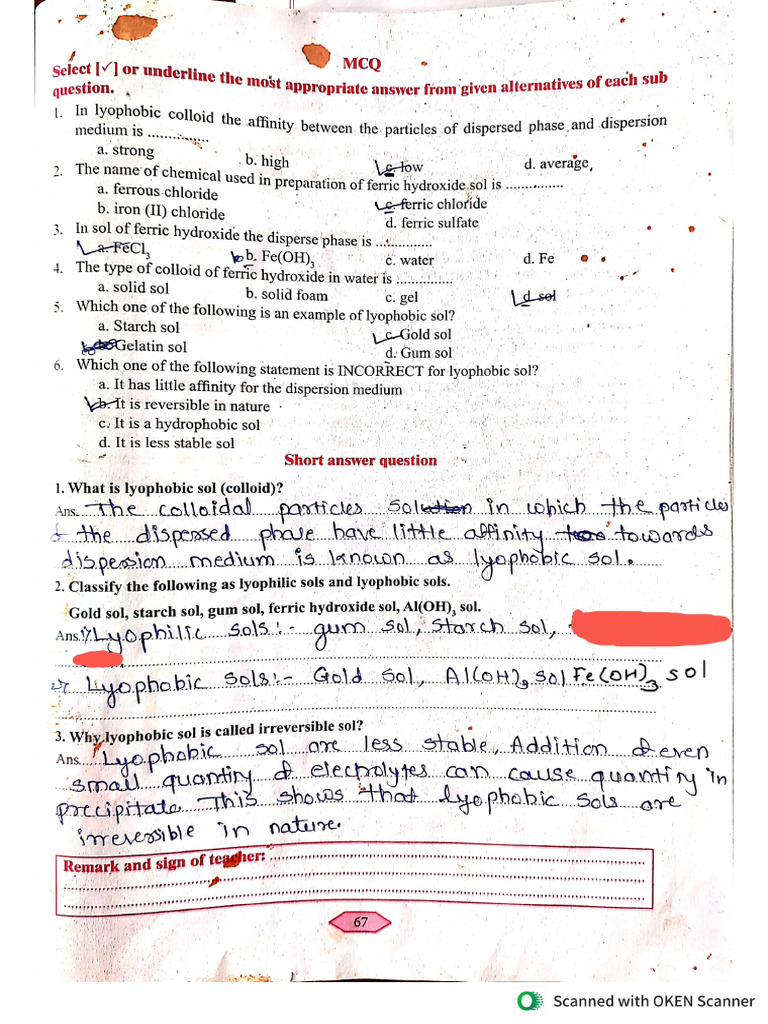 MCQ
Select [✓] or underline the most appropriate answer from given alternatives of each sub
question.
1. In lyophobic colloid the affinity between the particles of dispersed phase and dispersion
medium is ...............
a. strong b. high c. low d. average
2. The name of chemical used in preparation of ferric hydroxide sol is ...............
a. ferrous chloride c. ferric chloride
b. iron (II) chloride d. ferric sulfate
3. In sol of ferric hydroxide the disperse phase is ...............
a. FeCl₃ b. Fe(OH)₃ c. water d. Fe
4. The type of colloid of ferric hydroxide in water is ...............
a. solid sol b. solid foam c. gel d. sol
5. Which one of the following is an example of lyophobic sol?
a. Starch sol c. Gold sol
Gelatin sol d. Gum sol
6. Which one of the following statement is INCORRECT for lyophobic sol?
a. It has little affinity for the dispersion medium
b. It is reversible in nature
c. It is a hydrophobic sol
d. It is less stable sol
Short answer question
1. What is lyophobic sol (colloid)?
Ans. The colloidal particles solution in which the particles
of the dispersed phase have little affinity towards
dispersion medium is known as lyophobic sol.
2. Classify the following as lyophilic sols and lyophobic sols.
Gold sol, starch sol, gum sol, ferric hydroxide sol, Al(OH)₃ sol.
Ans. 1) Lyophilic sols :- gum sol, starch sol,
2) Lyophobic sols :- Gold sol, Al(OH)₃ sol Fe(OH)₃ sol
3. Why lyophobic sol is called irreversible sol?
Ans. Lyophobic sol are less stable, Addition of even
small quantity of electrolytes can cause quantity in
precipitate. This shows that lyophobic sols are
irreversible in nature.
Remark and sign of teacher:
67
Scanned with OKEN Scanner